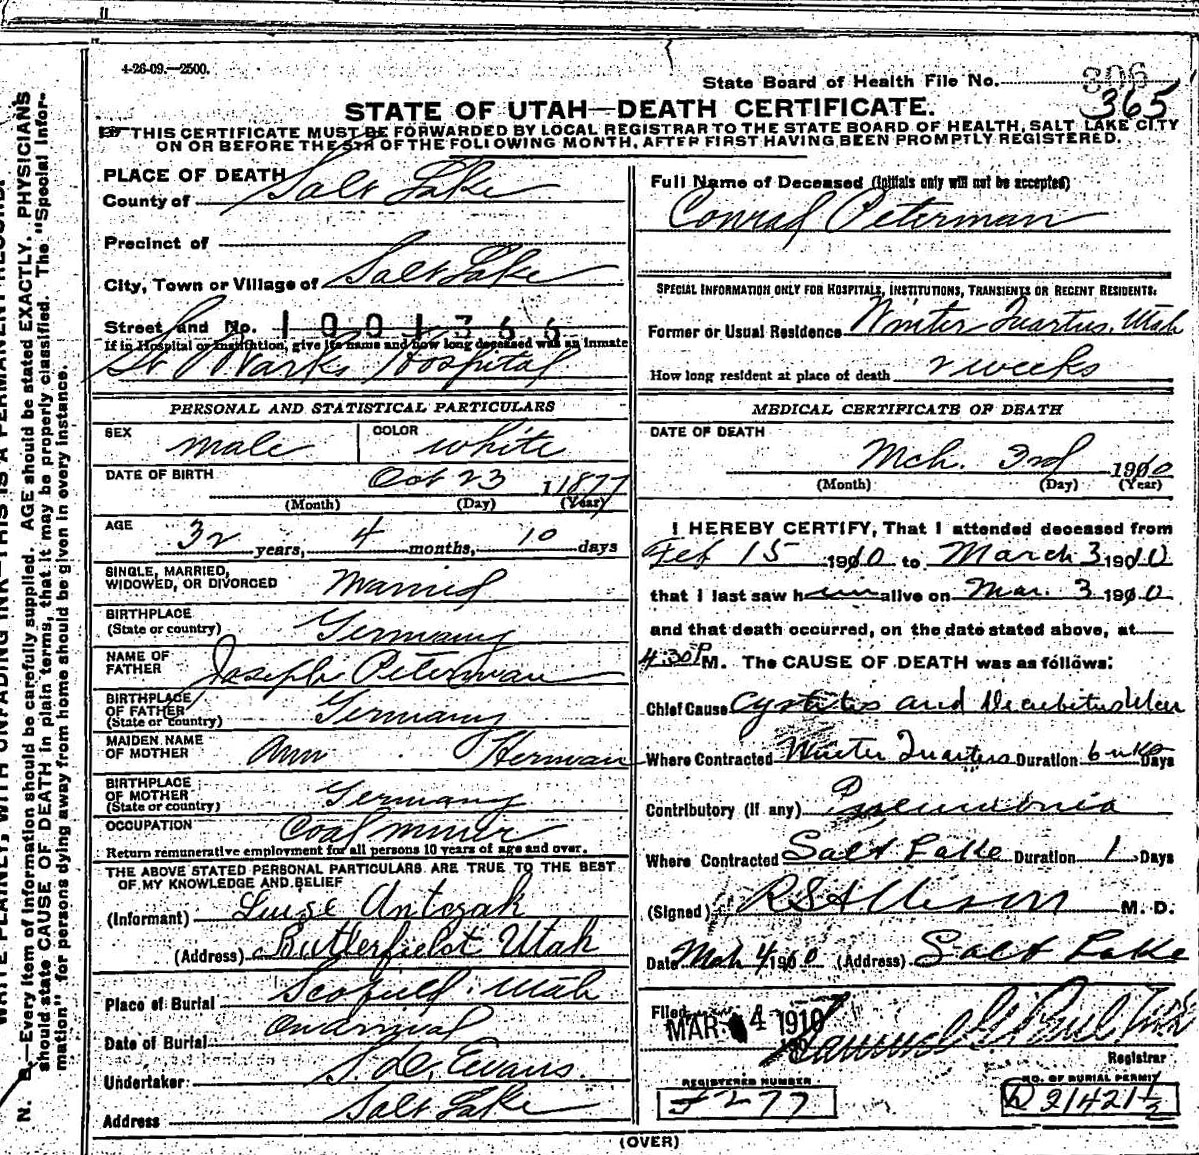 4-26-09.—2500.
State Board of Health File No. 306
365
STATE OF UTAH—DEATH CERTIFICATE.
THIS CERTIFICATE MUST BE FORWARDED BY LOCAL REGISTRAR TO THE STATE BOARD OF HEALTH, SALT LAKE CITY
ON OR BEFORE THE 5TH OF THE FOLLOWING MONTH, AFTER FIRST HAVING BEEN PROMPTLY REGISTERED.
PLACE OF DEATH
County of Salt Lake
Precinct of
City, Town or Village of Salt Lake
Street and No. 1001366
If in Hospital or Institution, give its name and how long deceased was an Inmate
St Marks Hospital
PERSONAL AND STATISTICAL PARTICULARS
SEX male COLOR white
DATE OF BIRTH Oct 23 1877
(Month) (Day) (Year)
AGE 32 years, 4 months, 10 days
SINGLE, MARRIED,
WIDOWED, OR DIVORCED Married
BIRTHPLACE
(State or country) Germany
NAME OF
FATHER Joseph Peterman
BIRTHPLACE
OF FATHER
(State or country) Germany
MAIDEN NAME
OF MOTHER Ann Herman
BIRTHPLACE
OF MOTHER
(State or country) Germany
OCCUPATION Coal miner
Return remunerative employment for all persons 10 years of age and over.
THE ABOVE STATED PERSONAL PARTICULARS ARE TRUE TO THE BEST
OF MY KNOWLEDGE AND BELIEF
(Informant) Luise Antczak
(Address) Butterfield Utah
Place of Burial Scofield Utah
Date of Burial On arrival
Undertaker: S. D. Evans.
Address Salt Lake
Full Name of Deceased (Initials only will not be accepted)
Conrad Peterman
SPECIAL INFORMATION ONLY FOR HOSPITALS, INSTITUTIONS, TRANSIENTS OR RECENT RESIDENTS.
Former or Usual Residence Winter Quarters, Utah
How long resident at place of death 2 weeks
MEDICAL CERTIFICATE OF DEATH
DATE OF DEATH
Mch. 3rd 1910
(Month) (Day) (Year)
I HEREBY CERTIFY, That I attended deceased from
Feb 15 1910 to March 3 1910
that I last saw him alive on Mar. 3 1910
and that death occurred, on the date stated above, at
4:30 P M. The CAUSE OF DEATH was as follows:
Chief Cause Cystitis and Decubitus Ulcer
Where Contracted Winter Quarters Duration 6 wks Days
Contributory (if any) Pneumonia
Where Contracted Salt Lake Duration 1 Days
(Signed) R S Allison M. D.
Date Mch 4 1910 (Address) Salt Lake
Filed MAR 4 1910
Registrar
REGISTERED NUMBER
F277
NO. OF BURIAL PERMIT
D 21421 1/2
(OVER)
N. B.—Every item of information should be carefully supplied. AGE should be stated EXACTLY. PHYSICIANS
should state CAUSE OF DEATH in plain terms, that it may be properly classified. The "Special Infor-
mation" for persons dying away from home should be given in every instance.
WRITE PLAINLY, WITH UNFADING INK—THIS IS A PERMANENT RECORD.